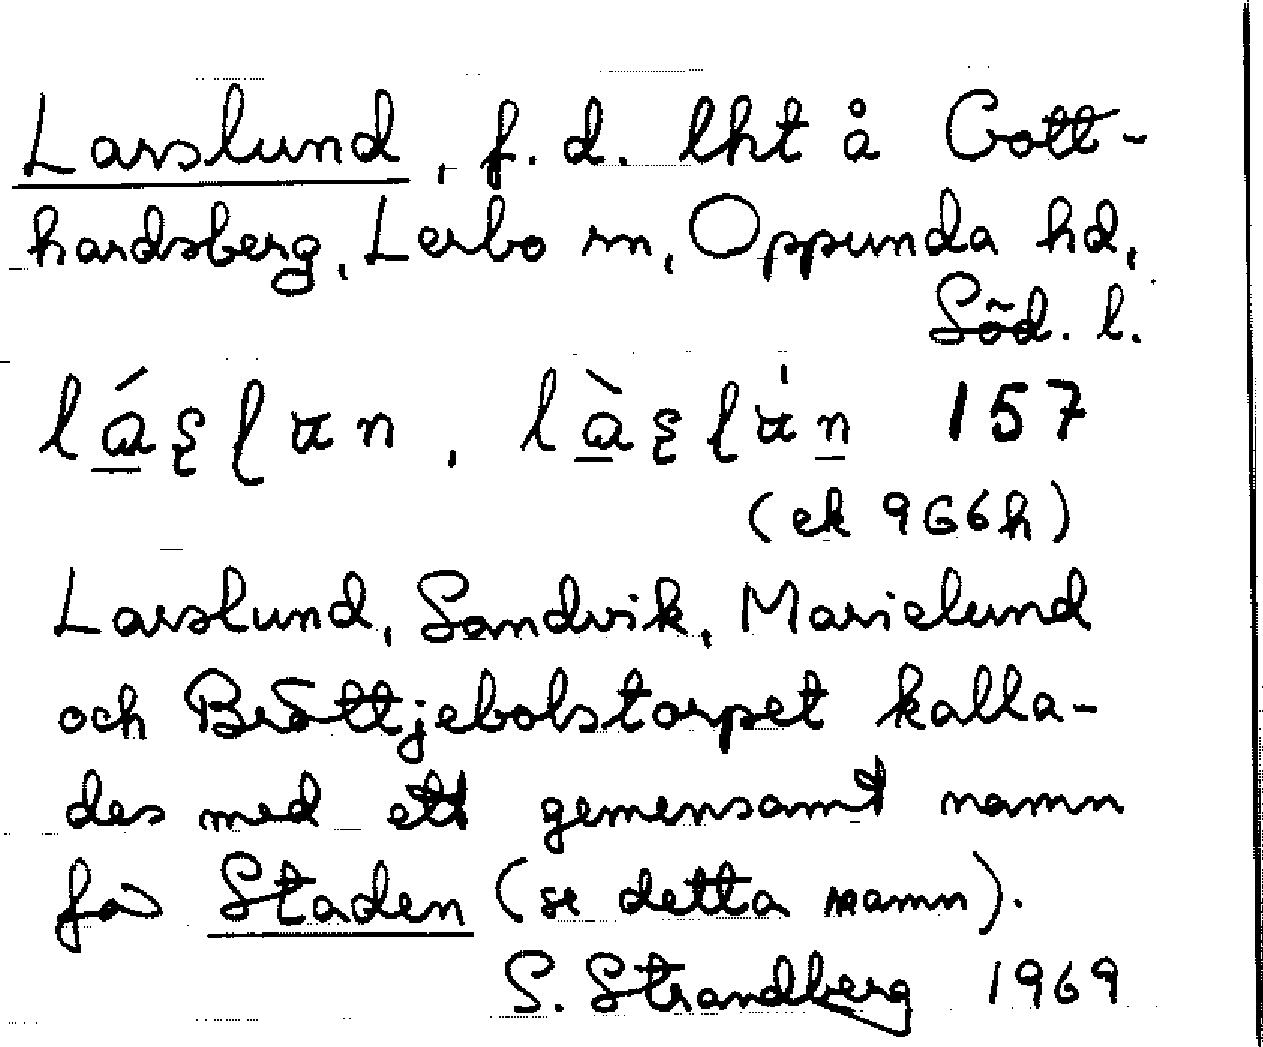 Larslund, f. d. lht å Gott-
hardsberg, Lerbo sn, Oppunda hd,
Söd. l.
157
(ek 9G6h)
Larslund, Sandvik, Marielund
och Bröttjebolstorpet kalla-
des med ett gemensamt namn
för Staden (se detta namn).
S. Strandberg 1969